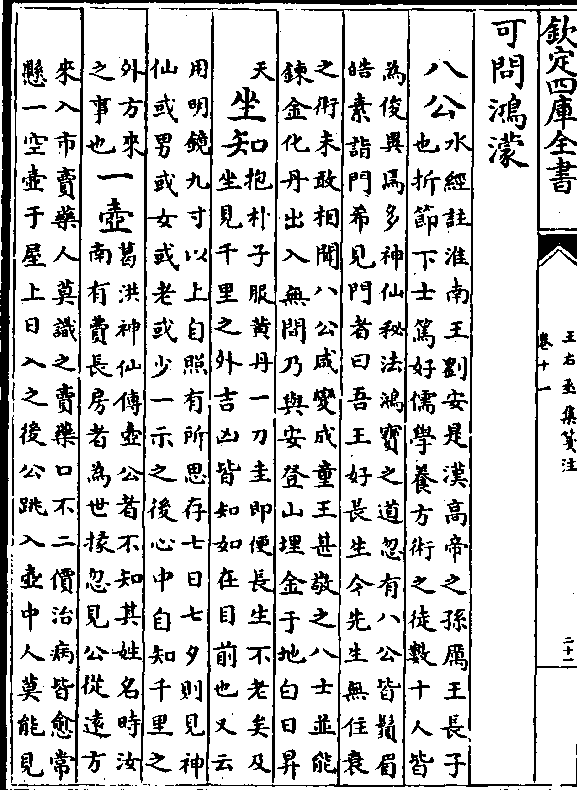 欽定四庫全書
王右丞集箋注
卷十一
二十二
可問鴻濛
八公
水經註淮南王劉安是漢高帝之孫厲王長子
也折節下士篤好儒學養方術之徒數十人皆
為俊異焉多神仙秘法鴻寶之道忽有八公皆鬚眉
皓素詣門希見門者曰吾王好長生今先生無住衰
之術未敢相聞八公咸變成童王甚敬之八士並能
鍊金化丹出入無間乃與安登山埋金于地白日昇
天
坐知
抱朴子服黄丹一刀圭即便長生不老矣及
坐見千里之外吉凶皆知如在目前也又云
用明鏡九寸以上自照有所思存七日七夕則見神
仙或男或女或老或少一示之後心中自知千里之
外方來
之事也
一壺
葛洪神仙傳壺公者不知其姓名時汝
南有費長房者為世掾忽見公從遠方
來入市賣藥人莫識之賣藥口不二價治病皆愈常
懸一空壺于屋上日入之後公跳入壺中人莫能見